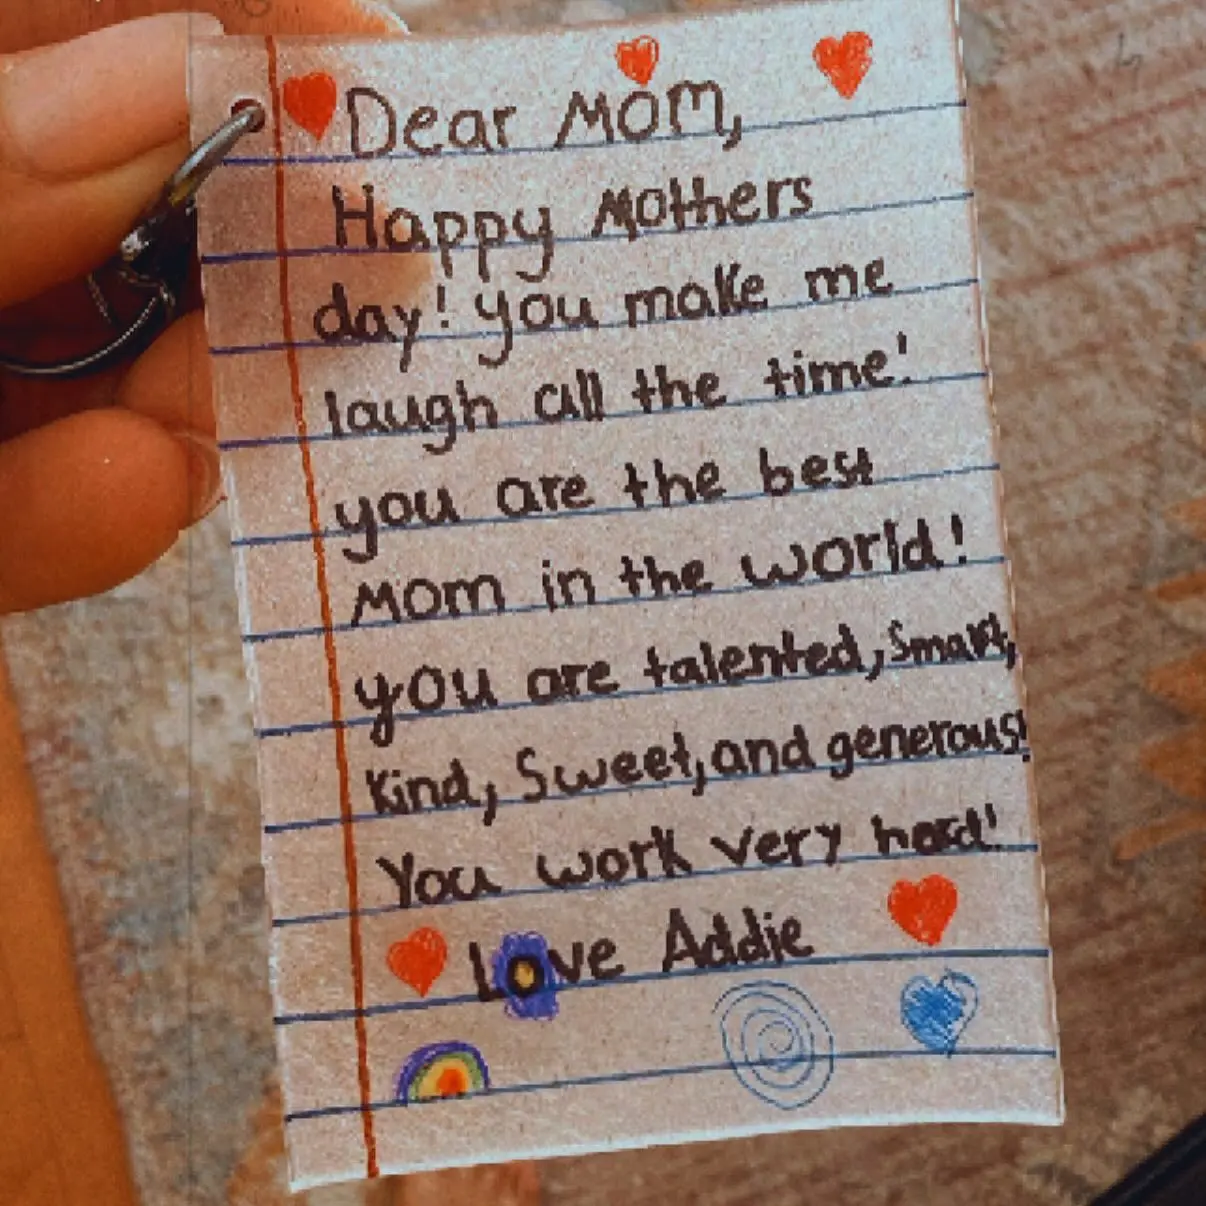 Dear Mom,
Happy Mothers
day! you make me
laugh all the time!
you are the best
Mom in the world!
you are talented, Smart,
Kind, Sweet, and generous!
You work very hard!
Love Addie